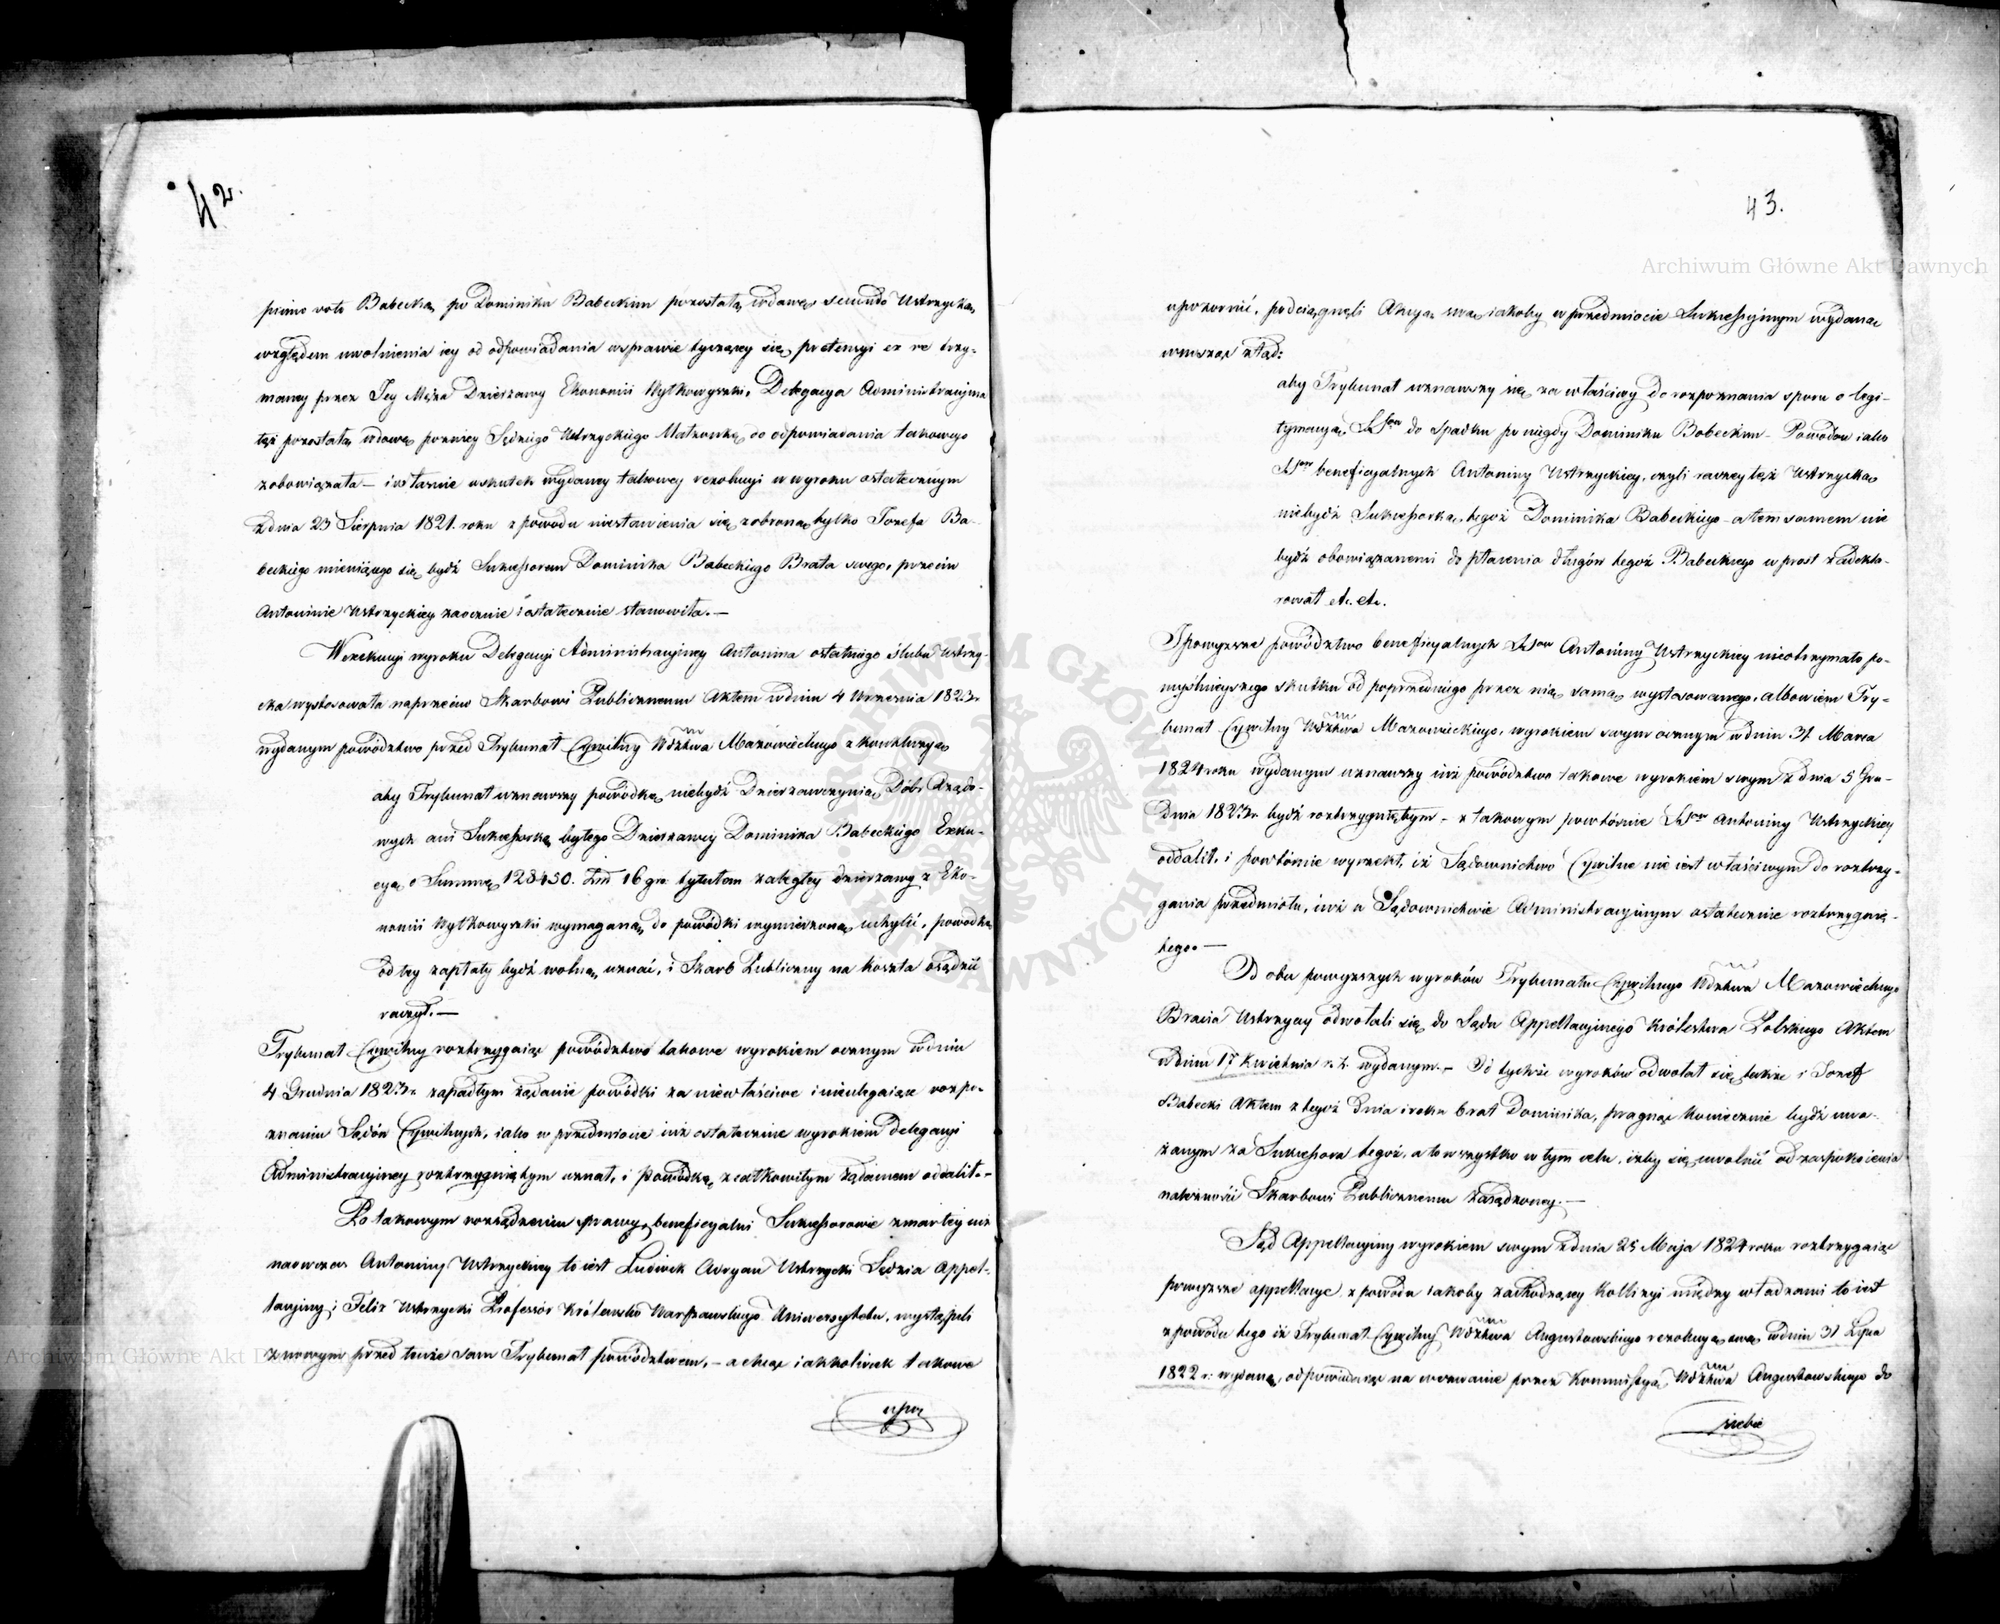 42.
primo voto Babecką po Dominiku Babeckim pozostałą wdowę, secundo Ustrzycką,
względem uwolnienia iey od odpowiadania w sprawie tyczącey się pretensyi ex re trzy-
maney przez Jey Męża Dzierzawy Ekonomii Wytkowyszki, Delegacya Administracyjna
też pozostałą wdowę poźniey Sędziego Ustrzyckiego Małzonkę do odpowiadania takowego
zobowiązała — i właśnie w skutek wydaney takowey rezolucyi w wyroku ostatecznym
z dnia 23 Sierpnia 1821. roku z powodu niestawienia się z obroną tylko Jozefa Ba-
beckiego mieniącego się bydź Sukcessorem Dominika Babeckiego Brata swego, przeciw
Antoninie Ustrzyckiey zaocznie i ostatecznie stanowiła. —
W exekucyi wyroku Delegacyi Administracyjney Antonina ostatniego ślubu Ustrzy-
cka wystosowała naprzeciw Skarbowi Publicznemu Aktem w dniu 4 Września 1823 r.
wydanym powództwo przed Trybunał Cywilny Wdztwa Mazowieckiego z konkluzyą
aby Trybunał uznawszy powódkę niebydź Dzierzawczynią Dóbr Rządo-
wych ani Sukcessorką byłego Dzierzawcy Dominika Babeckiego Exeku-
cyą o Summę 128450. Złł 16 gr. tytułem zaległey dzierzawy z Eko-
nomii Wytkowyszki wymaganą, do powódki wymierzoną uchylić, powodkę
od tey zapłaty bydź wolną uznać, i Skarb Publiczny na koszta osądzić
raczył. —
Trybunał Cywilny roztrzygaiąc powództwo takowe wyrokiem ocznym w dniu
4 Grudnia 1823 r. zapadłym żądanie powódki za niewłaściwe i nieulegaiące rozpo-
znaniu Sądów Cywilnych, iako w przedmiocie iuż ostatecznie wyrokiem delegacyi
Administracyjney roztrzygniętym uznał, i Powódkę z całkowitym żądaniem oddalił. —
Po takowym rozsądzeniu sprawy, beneficyalni Sukcessorowie zmarłey iuż
naowczas Antoniny Ustrzyckiey to iest Ludwik Adryan Ustrzycki Sędzia Appel-
lacyiny i Felix Ustrzycki Professor Królewsko Warszawskiego Uniwersytetu, wystąpili
z nowym przed tenże sam Trybunał powództwem, — a chcąc iakkolwiek takowe
upoz
43.
upozornić, podciągnęli Akcyą swą iakoby w przedmiocie Sukcessyinym wydaną
wnosząc ztąd:
aby Trybunał uznawszy się za właściwy do rozpoznania sporu o legi-
tymacyą SSrow do spadku po niegdy Dominiku Babeckim — Powodow iako
SSrow beneficyalnych Antoniny Ustrzyckiey, czyli raczey też Ustrzycką
niebydź Sukcessorką tegoż Dominika Babeckiego — a tem samem nie
bydź obowiązanemi do płacenia długów tegoż Babeckiego wprost zadekla-
rował etc. etc.
I powyzsze powództwo beneficyalnych SSrow Antoniny Ustrzyckiey nieotrzymało po-
myślnieyszego skutku od poprzedniego przez nią samą wystosowanego, albowiem Try-
bunał Cywilny Wdztwa Mazowieckiego, wyrokiem swym ocznym w dniu 31 Marca
1824 roku wydanym uznawszy iuż powództwo takowe wyrokiem swym z dnia 5 Gru-
dnia 1823 r. bydź roztrzygniętym — z takowym powtórnie SSrow Antoniny Ustrzyckiey
oddalił, i powtórnie wyrzekł, iż Sądownictwo Cywilne nie iest właściwym do roztrzy-
gania przedmiotu, iuż w Sądownictwie Administracyinym ostatecznie roztrzygnię-
tego. —
Od obu powyzszych wyroków Trybunału Cywilnego Wdztwa Mazowieckiego
Bracia Ustrzyccy odwołali się do Sądu Appellacyjnego Królestwa Polskiego Aktem
w dniu 17 Kwietnia r. t. wydanym. — Od tychże wyroków odwołał się także i Jozef
Babecki Aktem z tegoż dnia i roku brat Dominika, pragnąc koniecznie bydź uwa-
żanym za Sukcessora tegoż, a to wszystko w tym celu, iżby się uwolnić od zaspokoienia
należności Skarbowi Publicznemu zasądzoney. —
Sąd Appellacyjny wyrokiem swym z dnia 25 Maja 1824 roku roztrzygaiąc
powyzsze appellacye z powodu iakoby zachodzącey Kollizyi między władzami to iest
z powodu tego iż Trybunał Cywilny Wdztwa Augustowskiego rezolucyą swą w dniu 31 Lipca
1822 r. wydaną, odpowiadaiąc na wezwanie przez Kommissyą Wdztwa Augustowskiego do
siebie